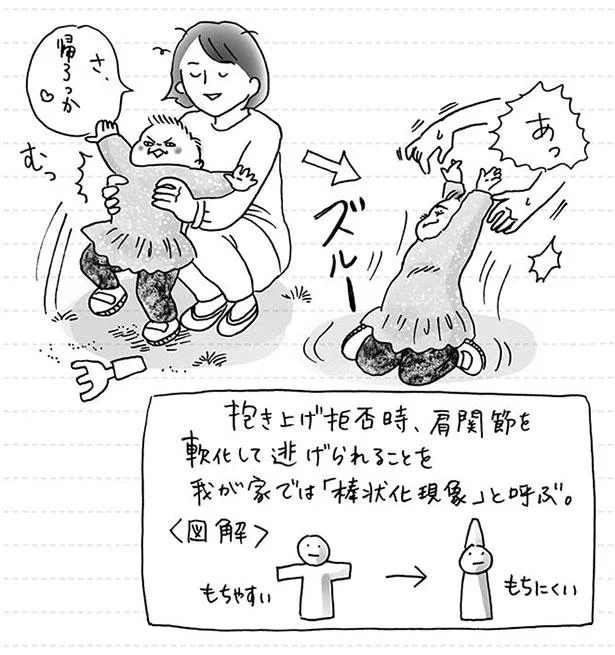 さ、
帰ろっか
むっ
あっ
ズルー
抱き上げ拒否時、肩関節を
軟化して逃げられることを
我が家では「棒状化現象」と呼ぶ。
〈図解〉
もちやすい
もちにくい